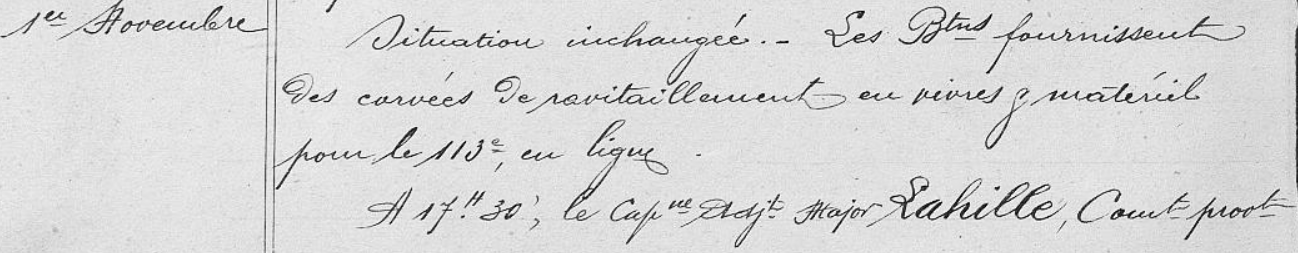 1er Novembre
Situation inchangée. - Les Btns fournissent
des corvées de ravitaillement en vivres & matériel
pour le 113e, en ligne.
A 17H 30', le Capne Adjt Major Lahille, Comt provt